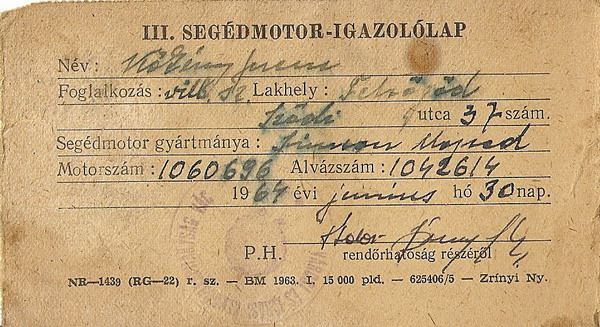 III. SEGÉDMOTOR-IGAZOLÓLAP
Név: Kökény Ferenc
Foglalkozás: vill. sz. Lakhely: Felsőgöd
utca 37 szám.
Segédmotor gyártmánya: Simson Moped
Motorszám: 1060696 Alvázszám: 1042614
1964 évi junius hó 30 nap.
P.H. rendőrhatóság részéről
NR—1439 (RG—22) r. sz. — BM 1963. I. 15 000 pld. — 625406/5 — Zrínyi Ny.